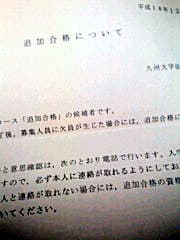 平成18年12
追加合格について
九州大学法
コース「追加合格」の候補者です。
了後、募集人員に欠員が生じた場合には、追加合格に
と意思確認は、次のとおり電話で行います。入学
すので、必ず本人に連絡が取れるようにしてお
人と連絡が取れない場合には、追加合格の資格
いてください。